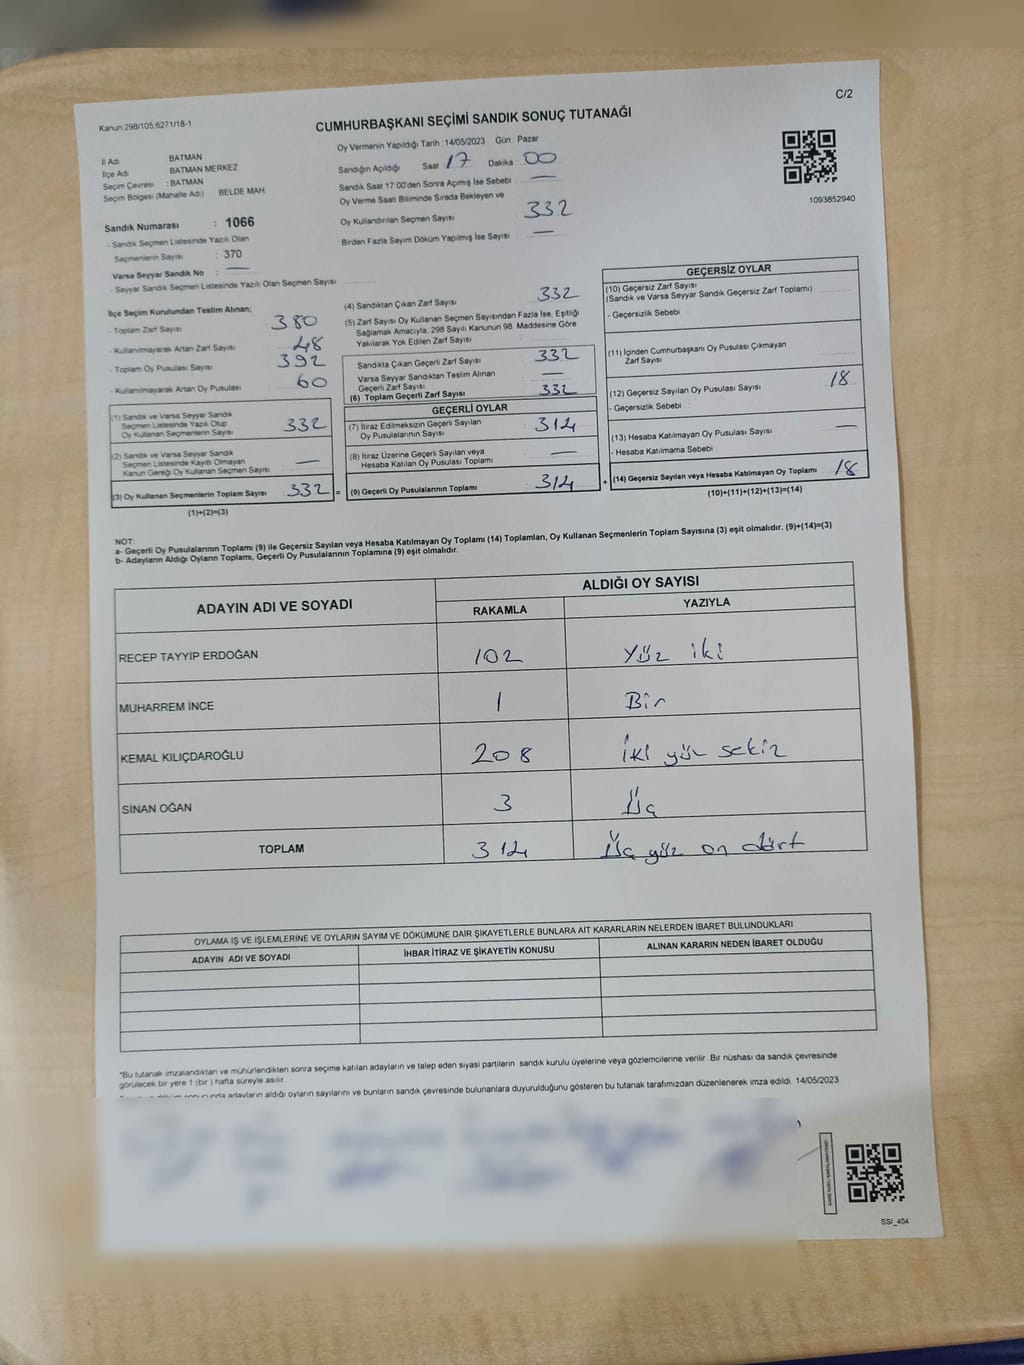 C/2
Kanun:298/105;6271/18-1
CUMHURBAŞKANI SEÇİMİ SANDIK SONUÇ TUTANAĞI
İl Adı BATMAN
İlçe Adı BATMAN MERKEZ
Seçim Çevresi : BATMAN
Seçim Bölgesi (Mahalle Adı) BELDE MAH.
Sandık Numarası : 1066
- Sandık Seçmen Listesinde Yazılı Olan
Seçmenlerin Sayısı : 370
Varsa Seyyar Sandık No : —
- Seyyar Sandık Seçmen Listesinde Yazılı Olan Seçmen Sayısı
Oy Vermenin Yapıldığı Tarih : 14/05/2023 Gün : Pazar
Sandığın Açıldığı Saat 17 Dakika 00
Sandık Saat 17:00'den Sonra Açımış İse Sebebi : —
Oy Verme Saati Bitiminde Sırada Bekleyen ve
Oy Kullandırılan Seçmen Sayısı : 332
Birden Fazla Sayım Döküm Yapılmış İse Sayısı : —
1093852940
İlçe Seçim Kurulundan Teslim Alınan;
- Toplam Zarf Sayısı 380
- Kullanılmayarak Artan Zarf Sayısı 48
- Toplam Oy Pusulası Sayısı 392
- Kullanılmayarak Artan Oy Pusulası 60
(1) Sandık ve Varsa Seyyar Sandık
Seçmen Listesinde Yazılı Olup
Oy Kullanan Seçmenlerin Sayısı 332
(2) Sandık ve Varsa Seyyar Sandık
Seçmen Listesinde Kayıtlı Olmayan
Kanun Gereği Oy Kullanan Seçmen Sayısı —
(3) Oy Kullanan Seçmenlerin Toplam Sayısı 332 =
(1)+(2)=(3)
(4) Sandıktan Çıkan Zarf Sayısı 332
(5) Zarf Sayısı Oy Kullanan Seçmen Sayısından Fazla İse, Eşitliği
Sağlamak Amacıyla, 298 Sayılı Kanunun 98. Maddesine Göre
Yakılarak Yok Edilen Zarf Sayısı
Sandıkta Çıkan Geçerli Zarf Sayısı 332
Varsa Seyyar Sandıktan Teslim Alınan
Geçerli Zarf Sayısı —
(6) Toplam Geçerli Zarf Sayısı 332
GEÇERLİ OYLAR
(7) İtiraz Edilmeksizin Geçerli Sayılan
Oy Pusulalarının Sayısı 314
(8) İtiraz Üzerine Geçerli Sayılan veya
Hesaba Katılan Oy Pusulası Toplamı —
(9) Geçerli Oy Pusulalarının Toplamı 314 +
GEÇERSİZ OYLAR
(10) Geçersiz Zarf Sayısı
(Sandık ve Varsa Seyyar Sandık Geçersiz Zarf Toplamı)
- Geçersizlik Sebebi
(11) İçinden Cumhurbaşkanı Oy Pusulası Çıkmayan
Zarf Sayısı
(12) Geçersiz Sayılan Oy Pusulası Sayısı 18
- Geçersizlik Sebebi :
(13) Hesaba Katılmayan Oy Pusulası Sayısı —
- Hesaba Katılmama Sebebi :
(14) Geçersiz Sayılan veya Hesaba Katılmayan Oy Toplamı 18
(10)+(11)+(12)+(13)=(14)
NOT:
a- Geçerli Oy Pusulalarının Toplamı (9) ile Geçersiz Sayılan veya Hesaba Katılmayan Oy Toplamı (14) Toplamları, Oy Kullanan Seçmenlerin Toplam Sayısına (3) eşit olmalıdır. (9)+(14)=(3)
b- Adayların Aldığı Oyların Toplamı, Geçerli Oy Pusulalarının Toplamına (9) eşit olmalıdır.
ADAYIN ADI VE SOYADI ALDIĞI OY SAYISI
RAKAMLA YAZIYLA
RECEP TAYYİP ERDOĞAN 102 Yüz iki
MUHARREM İNCE 1 Bir
KEMAL KILIÇDAROĞLU 208 İki yüz sekiz
SİNAN OĞAN 3 Üç
TOPLAM 314 Üç yüz on dört
OYLAMA İŞ VE İŞLEMLERİNE VE OYLARIN SAYIM VE DÖKÜMÜNE DAİR ŞİKAYETLERLE BUNLARA AİT KARARLARIN NELERDEN İBARET BULUNDUKLARI
ADAYIN ADI VE SOYADI İHBAR İTİRAZ VE ŞİKAYETİN KONUSU ALINAN KARARIN NEDEN İBARET OLDUĞU
*Bu tutanak imzalandıktan ve mühürlendikten sonra seçime katılan adayların ve talep eden siyasi partilerin sandık kurulu üyelerine veya gözlemcilerine verilir. Bir nüshası da sandık çevresinde
görülecek bir yere 1 (bir) hafta süreyle asılır.
sonucunda adayların aldığı oyların sayılarını ve bunların sandık çevresinde bulunanlara duyurulduğunu gösteren bu tutanak tarafımızdan düzenlenerek imza edildi. 14/05/2023
SSI_404